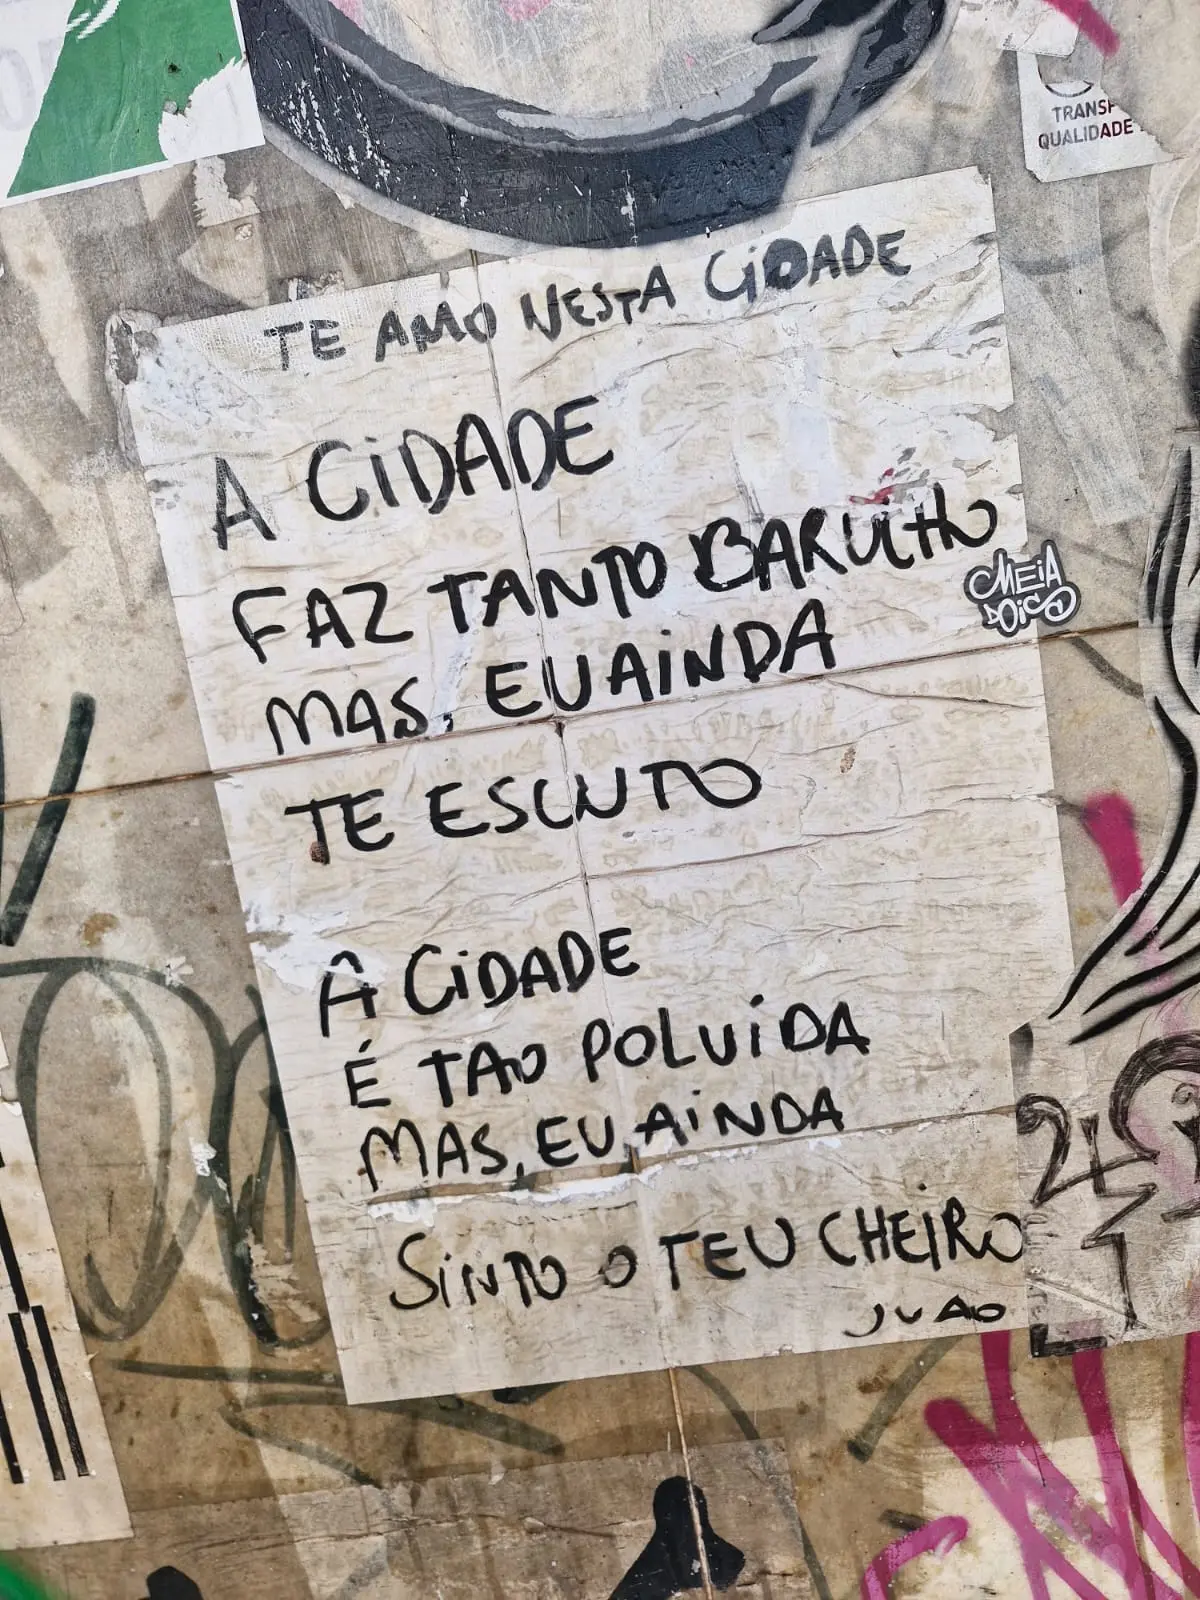 TRANSP
QUALIDADE
TE AMO NESTA CIDADE
A CIDADE
FAZ TANTO BARULHO
MEIA
DOIS
MAS, EU AINDA
TE ESCUTO
A CIDADE
É TAO POLUIDA
MAS, EU AINDA
SINTO O TEU CHEIRO
JUAO